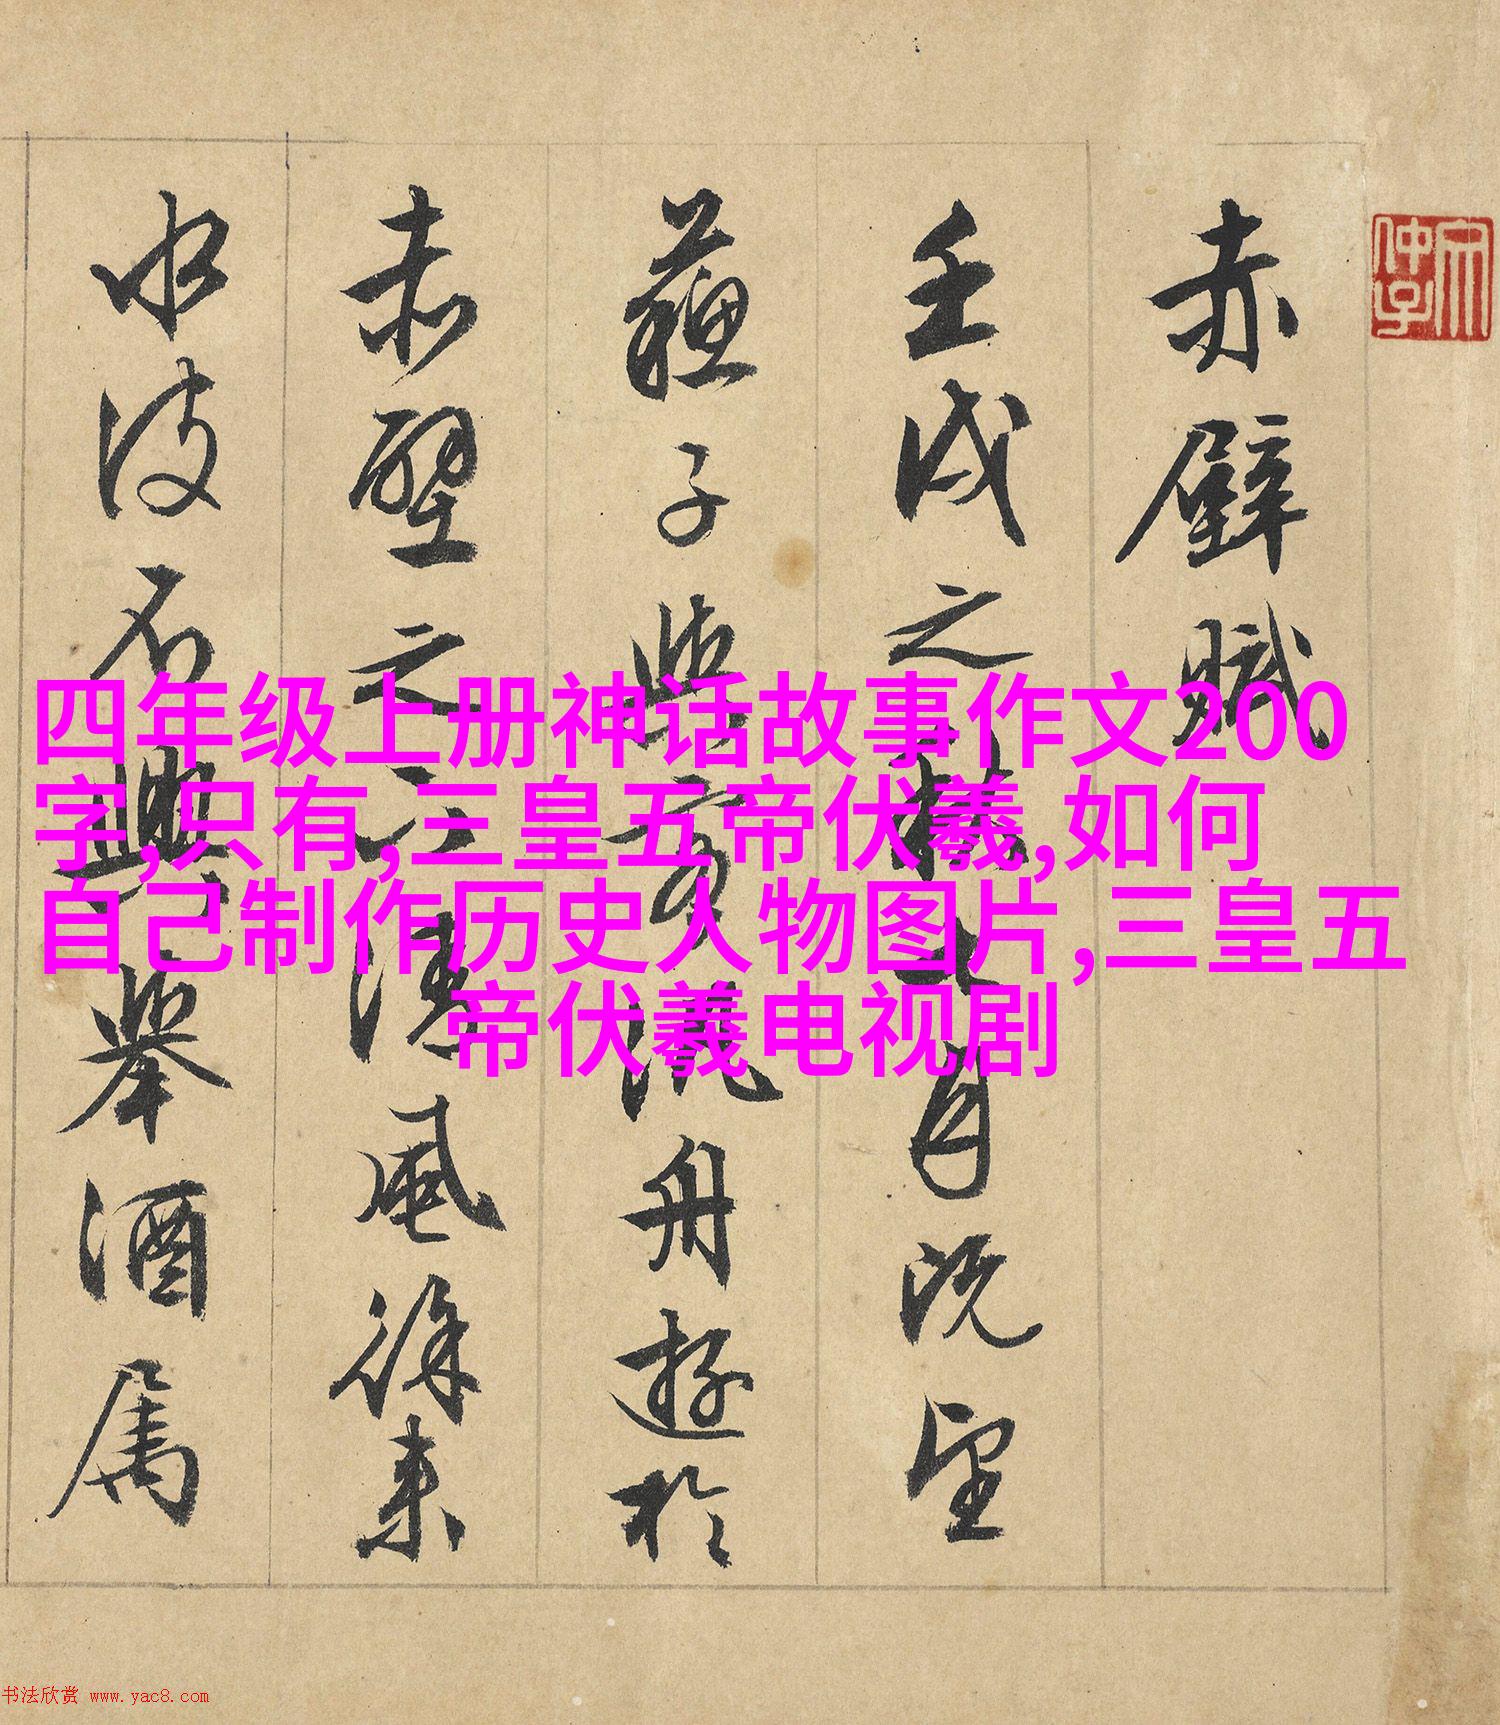 赤壁賦
壬戌之秋七月既望
蘇子與客泛舟遊於
赤壁之下清風徐來
水波不興舉酒屬
四年级上册神话故事作文200
字,只有,三皇五帝伏羲,如何
自己制作历史人物图片,三皇五
帝伏羲电视剧
书法欣赏 www.yac8.com